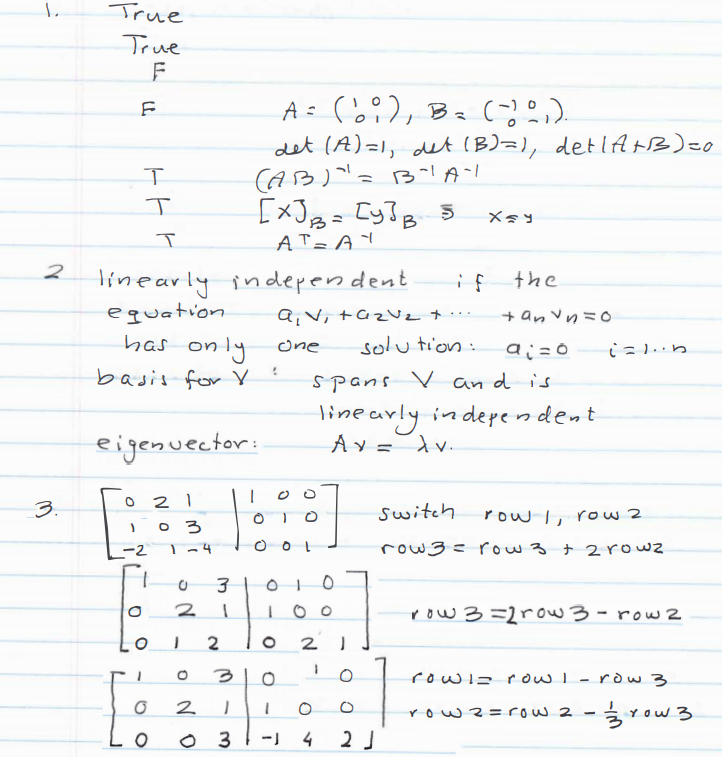 1. True
True
F
F A = (1 0 0 1), B = (-1 0 0 -1).
det (A)=1, det (B)=1, det(A+B)=0
T (AB)^-1 = B^-1 A^-1
T [x]_B = [y]_B ⇒ x=y
T A^T = A^-1
2 linearly independent if the
equation a1v1 + a2v2 + ... + anvn = 0
has only one solution: ai=0 i=1..n
basis for V : spans V and is
linearly independent
eigenvector: Av = λv.
3. [0 2 1 | 1 0 0] switch row 1, row 2
[1 0 3 | 0 1 0]
[-2 1 -4 | 0 0 1] row3 = row 3 + 2 row2
[1 0 3 | 0 1 0]
[0 2 1 | 1 0 0] row 3 = 2 row 3 - row 2
[0 1 2 | 0 2 1]
[1 0 3 | 0 1 0] row1 = row 1 - row 3
[0 2 1 | 1 0 0] row 2 = row 2 - 1/3 row 3
[0 0 3 | -1 4 2]